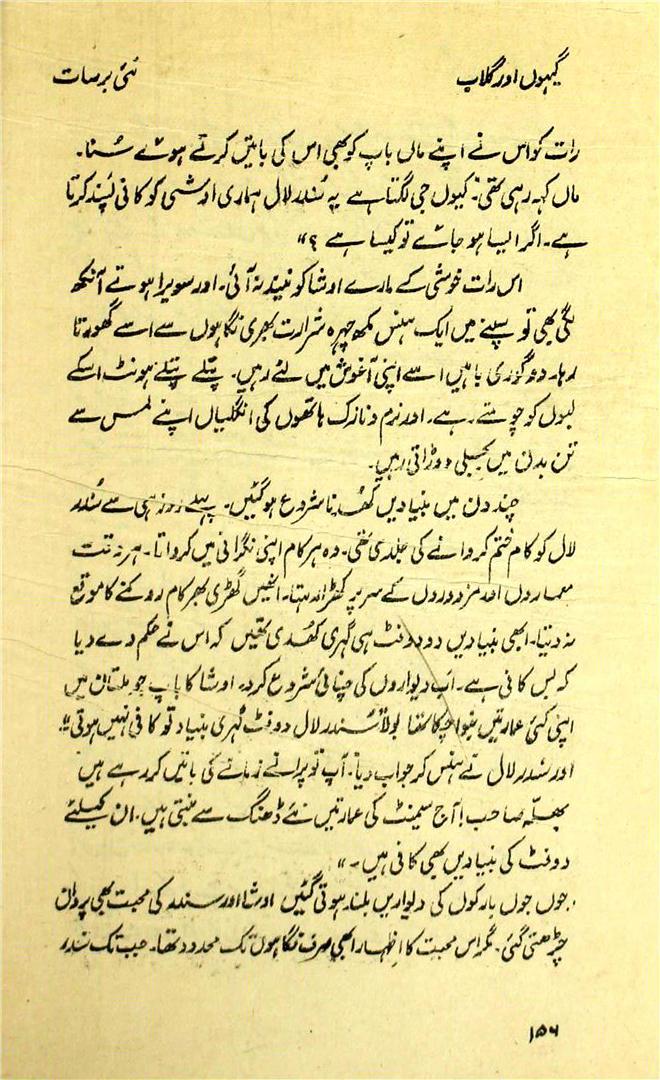 گیہوں اور گلاب
نئی برسات
رات کو اس نے اپنے ماں باپ کو بھی اس کی باتیں کرتے ہوئے سنا۔
ماں کہہ رہی تھی: کیوں جی لگتا ہے یہ سندر لال ہماری اوشی کو کافی پسند کرتا
ہے۔ اگر ایسا ہو جائے تو کیسا ہے؟"
اس رات خوشی کے مارے اوشا کو نیند نہ آئی۔ اور سویرا ہوتے آنکھ
لگی بھی تو سپنے میں ایک ہنس مکھ چہرہ شرارت بھری نگاہوں سے اسے گھورتا
رہا۔ دو گوری باہیں اسے اپنی آغوش میں لئے رہیں۔ پتلے پتلے ہونٹ اسکے
لبوں کو چومتے رہے۔ اور نرم و نازک ہاتھوں کی انگلیاں اپنے لمس سے
تن بدن میں بجلی دوڑاتی رہیں۔
چند دن میں بنیادیں کھدنا شروع ہو گئیں۔ پہلے روز ہی سے سندر
لال کو کام ختم کروانے کی جلدی تھی۔ وہ ہر کام اپنی نگرانی میں کرواتا۔ ہر وقت
معماروں اور مزدوروں کے سر پر کھڑا رہتا۔ انہیں گھڑی بھر کام روکنے کا موقع
نہ دیتا۔ ابھی بنیادیں دو دو فٹ ہی گہری کھدی تھیں کہ اس نے حکم دے دیا
کہ بس کافی ہے۔ اب دیواروں کی چنائی شروع کردو۔ اوشا کا باپ جو ملتان میں
اپنی کئی عمارتیں بنوا چکا تھا بولا "سندر لال دو فٹ گہری بنیاد تو کافی نہیں ہوتی"۔
اور سندر لال نے ہنس کر جواب دیا۔ آپ تو پرانے زمانے کی باتیں کر رہے ہیں
بھلّہ صاحب! آج سیمنٹ کی عمارتیں نئے ڈھنگ سے بنتی ہیں۔ ان کیلئے
دو فٹ کی بنیادیں بھی کافی ہیں۔"
جوں جوں بارکوں کی دیواریں بلند ہوتی گئیں اوشا اور سندر کی محبت بھی پروان
چڑھتی گئی۔ مگر اس محبت کا اظہار ابھی صرف نگاہوں تک محدود تھا۔ جب تک سندر
۱۵۶